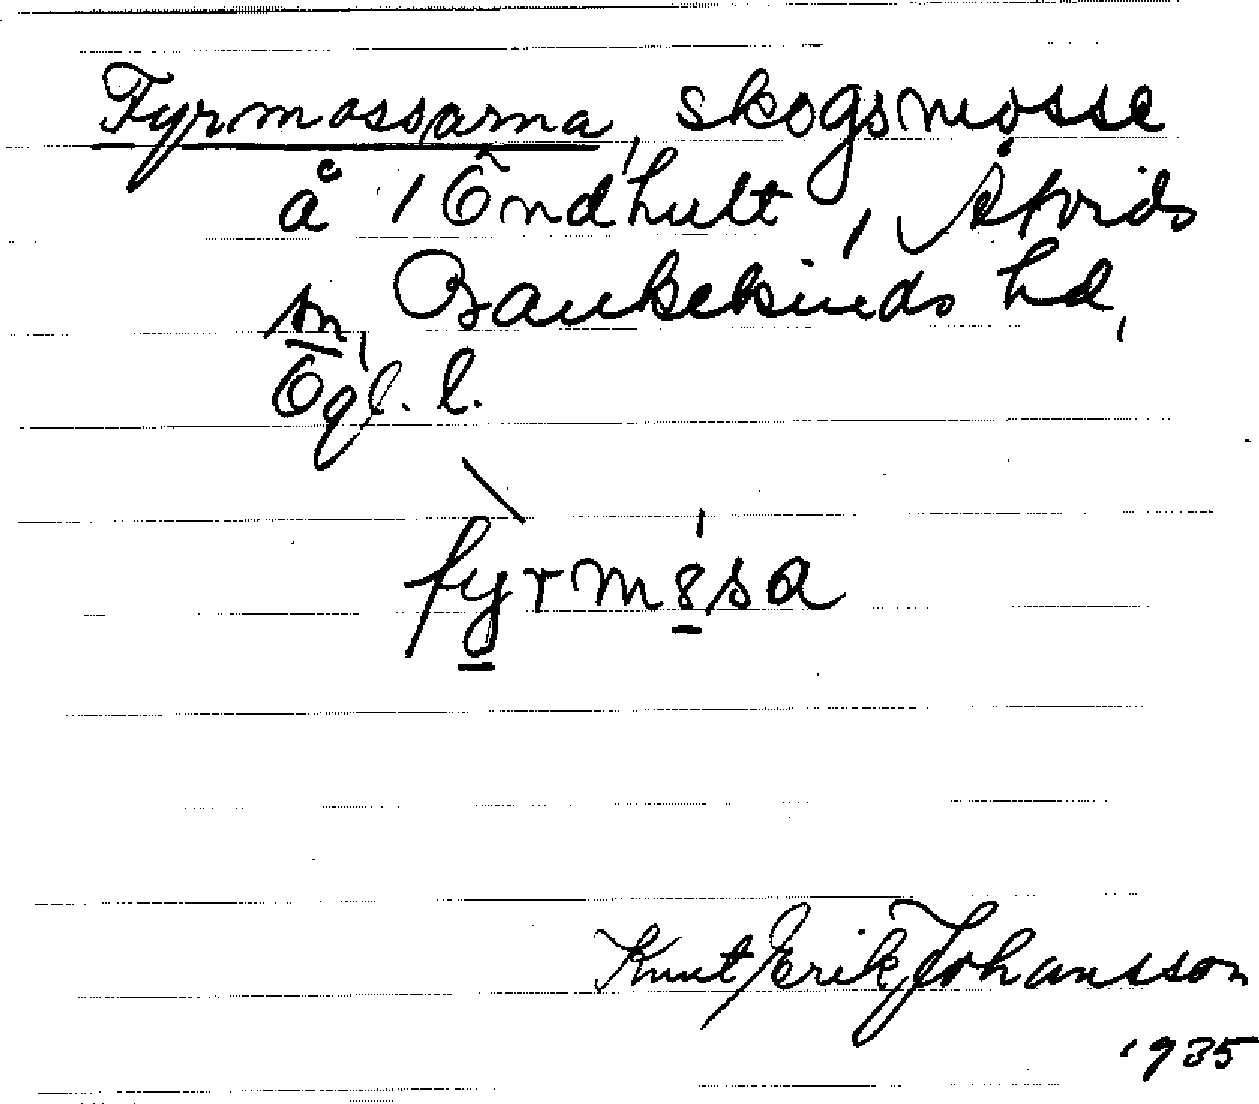 Fyrmossarna, skogsmosse
å 1 Öndhult, Åtvids
sn, Bankekinds hd,
Ögl. l.
fyrmosa
Knut Erik Johansson
1935